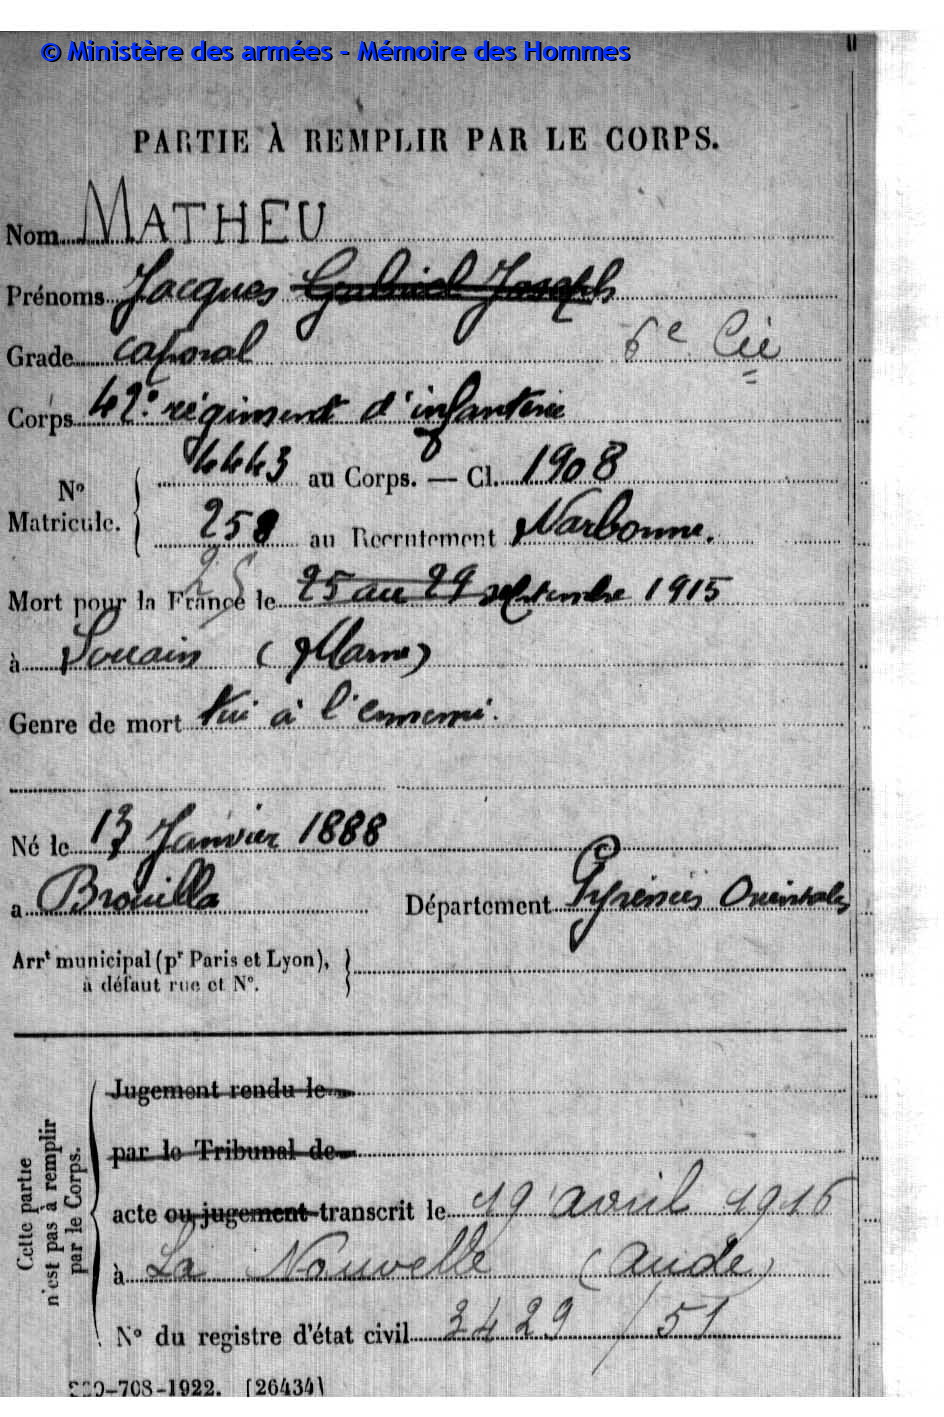 © Ministère des armées - Mémoire des Hommes
PARTIE À REMPLIR PAR LE CORPS.
Nom MATHEU
Prénoms Jacques Gabriel Joseph
Grade caporal 6e Cie
Corps 42e régiment d'infanterie
4443 au Corps. — Cl. 1908
N°
Matricule.
258 au Recrutement Narbonne.
25
Mort pour la France le 25 au 29 septembre 1915
à Souain (Marne)
Genre de mort Tué à l'ennemi.
Né le 13 Janvier 1888
a Brouilla Département Pyrénées Orientales
Arrt municipal (pr Paris et Lyon),
à défaut rue et N°.
Cette partie
n'est pas à remplir
par le Corps.
Jugement rendu le
par le Tribunal de
acte ou jugement transcrit le 19 avril 1916
à La Nouvelle (Aude)
N° du registre d'état civil 3429 / 51
-708-1922. [26434]